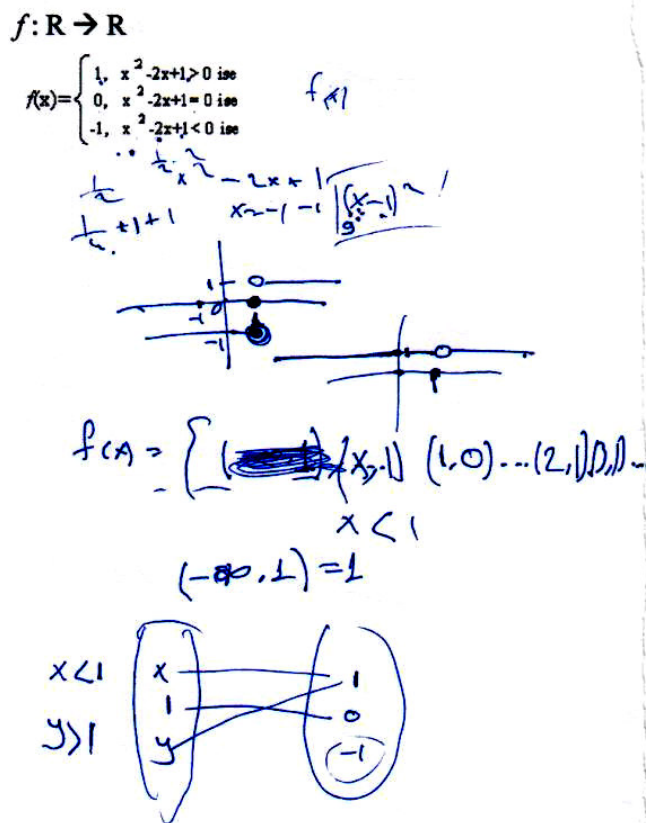 f: R → R
f(x)= { 1, x² -2x+1> 0 ise
0, x² -2x+1= 0 ise
-1, x² -2x+1< 0 ise
f(x)
x² - 2x + 1
(x-1)²
1/2
+1+1
1 0
-1 0
-1
f(x) = { (x,-1) (1,0) ... (2,1)
x < 1
(-∞, 1) = 1
x<1 x 1
1 0
y>1 y -1